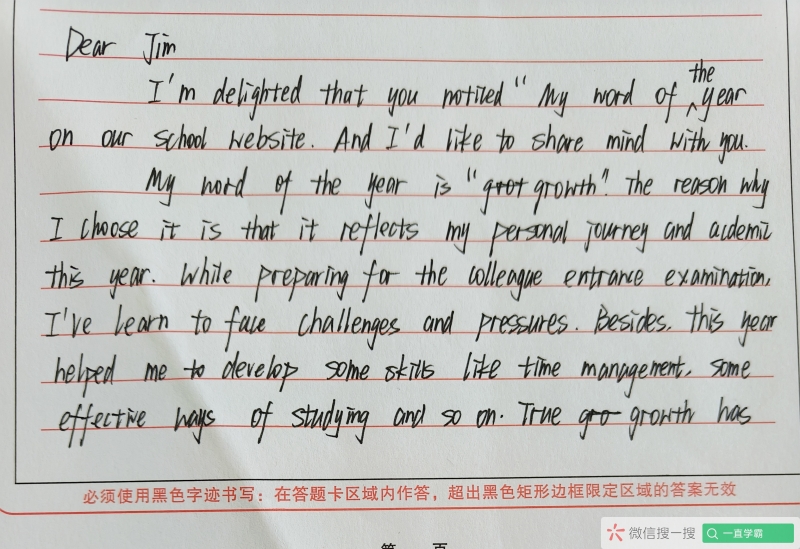 Dear Jim
I'm delighted that you notived "My word of the year
on our school website. And I'd like to share mind with you.
My word of the year is "growth". The reason why
I choose it is that it reflects my personal journey and acdemic
this year. While preparing for the colleague entrance examination,
I've learn to face challenges and pressures. Besides, this year
helped me to develop some skills like time management, some
effective ways of studying and so on. True growth has
必须使用黑色字迹书写：在答题卡区域内作答，超出黑色矩形边框限定区域的答案无效
第 页
微信搜一搜 一直学霸